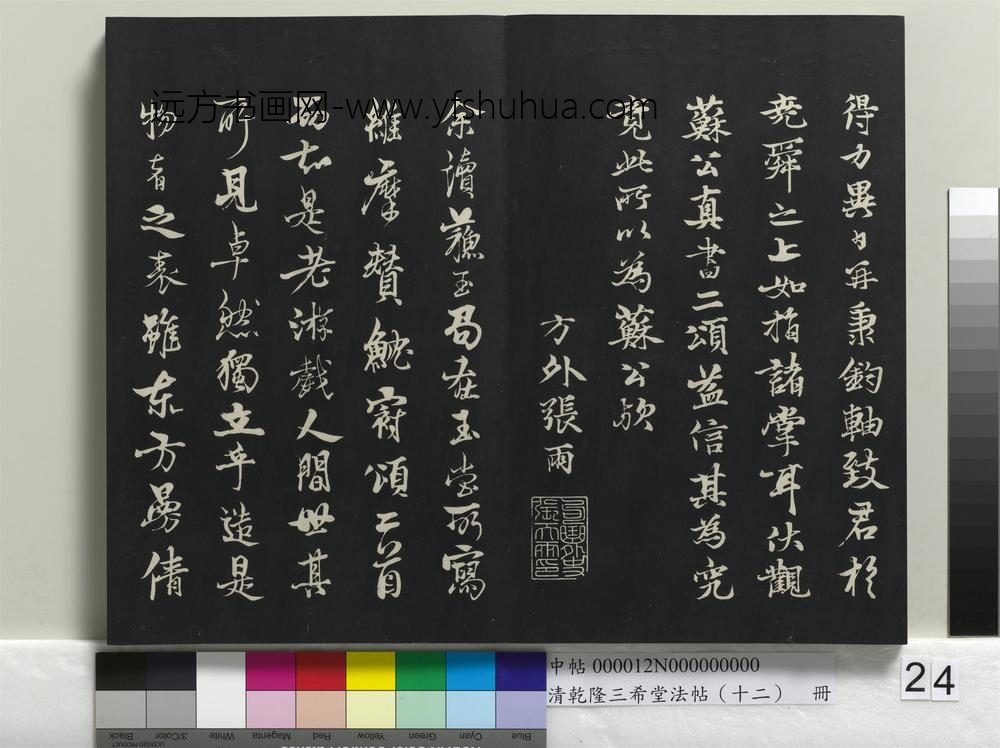 得力異日年秉鈞軸致君於
堯舜之上如指諸掌耳伏觀
蘇公真書二頌益信其為究
竟此所以為蘇公歟
方外張雨
余讀蘇玉局在玉堂所寫
維摩贊魷冠頌二首
乃知是老游戲人間世其
所見卓然獨立乎造是
物者之表雖東方曼倩
远方书画网-www.yfshuhua.com
中帖 000012N000000000
清乾隆三希堂法帖（十二） 冊
24
Black
3/Color
White
Magenta
Red
Yellow
Green
Cyan
Blue